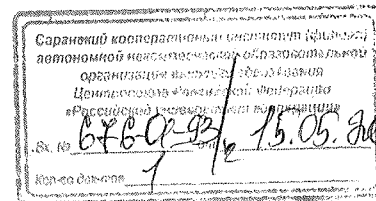 Саранский кооперативный институт (филиал)
автономной некоммерческой образовательной
организации высшего образования
Центросоюза Российской Федерации
«Российский университет кооперации»
Вх. № 15.05.
Кол-во листов 1